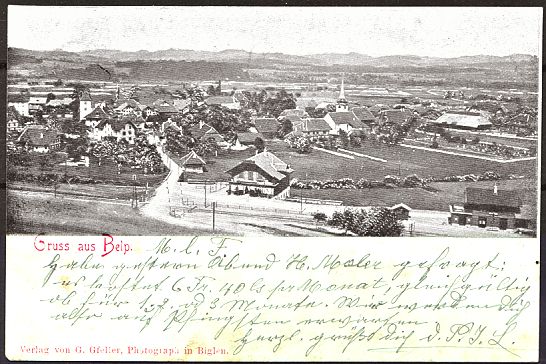 Gruss aus Belp.
M. l. F.
Habe gestern Abend H. Moler gefragt;
es kostet 6 Fr. 40 Cs pr Monat, gleichgültig
ob für 1, 2 od 3 Monate. Wir werden dich
also auf Pfingsten erwarten
Herzl. grüßt dich d.
Verlag von G. Gfeller, Photograph in Biglen.